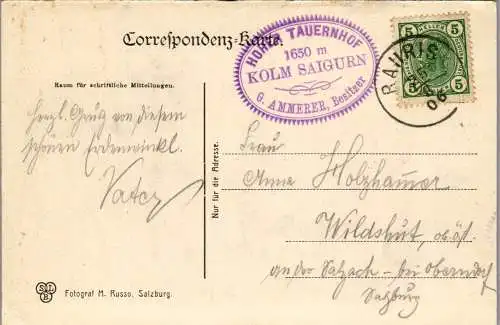 Correspondenz-Karte.
HOHER TAUERNHOF
1650 m
KOLM SAIGURN
G. AMMERER, Besitzer
5 5
5 5
RAURIS
06
Raum für schriftliche Mitteilungen.
Herzl. Gruß von diesem
schönen Erdenwinkel.
Vater
Nur für die Adresse.
Frau
Anna Holzhamer
Wildshut, ob. öst.
an der Salzach - bei Oberndorf
Salzburg
Fotograf M. Russo, Salzburg.